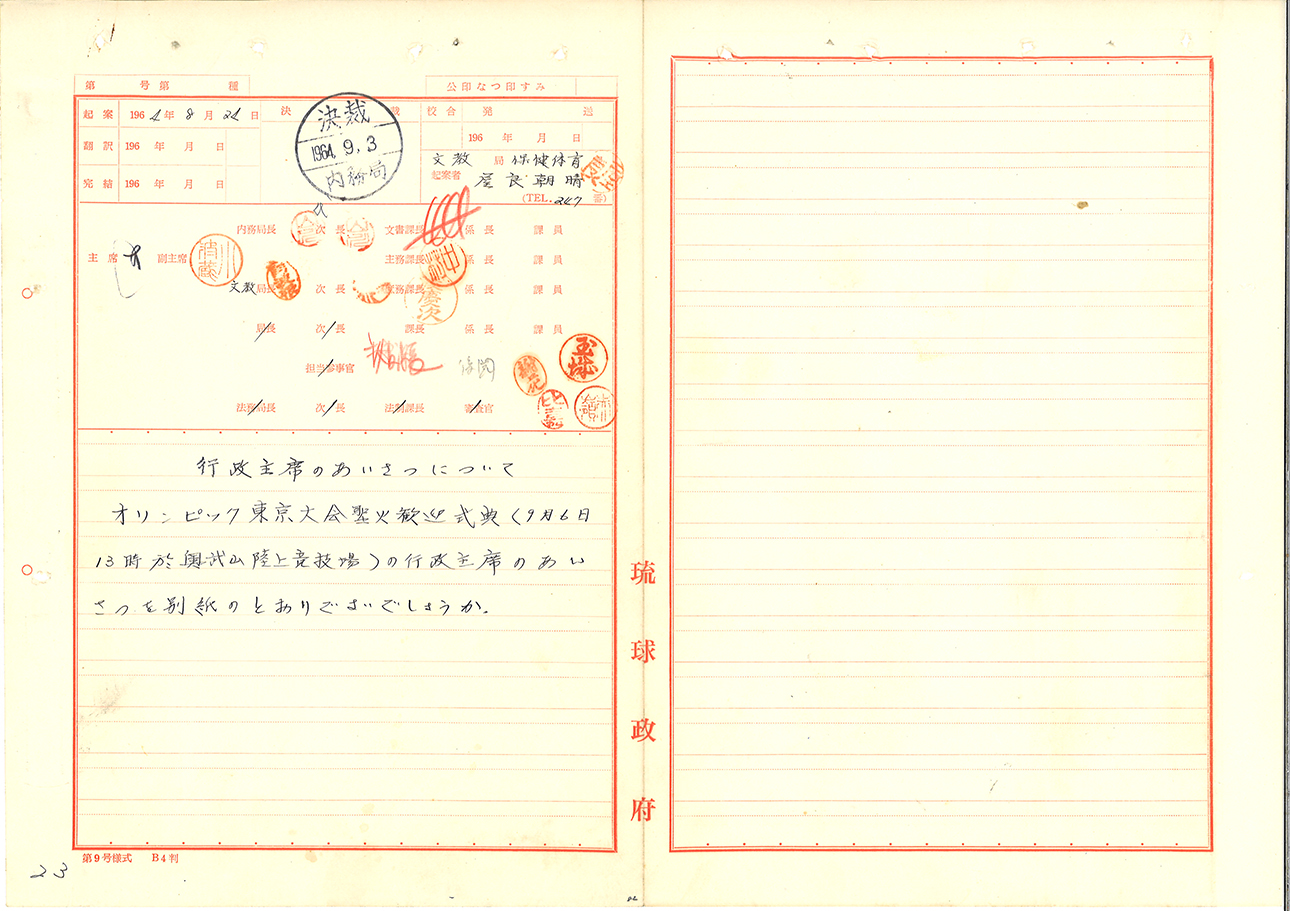 第 号第 種
公印なつ印すみ
起案 1964年8月24日
決 裁
校合 発 送
翻訳 196 年 月 日
196 年 月 日
完結 196 年 月 日
決裁
1964. 9. 3
内務局
文教 局 保健体育
起案者 屋良朝晴
(TEL. 247 番)
内務局長 次長 文書課長 係長 課員
主席 副主席 主務課長 係長 課員
文教局長 次長 庶務課長 係長 課員
局長 次長 課長 係長 課員
担当参事官
法務局長 次長 法制課長 審査官
行政主席のあいさつについて
オリンピック東京大会聖火歓迎式典(9月6日
13時於奥武山陸上競技場)の行政主席のあい
さつを別紙のとおりでよいでしょうか。
琉球政府
第9号様式 B4判
23